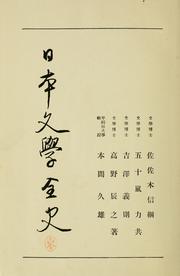 文學博士 佐佐木信綱
文學博士 五十嵐力
文學博士 吉澤義則
文學博士 高野辰之
早稻田大學教授 本間久雄
共著
日本文學全史